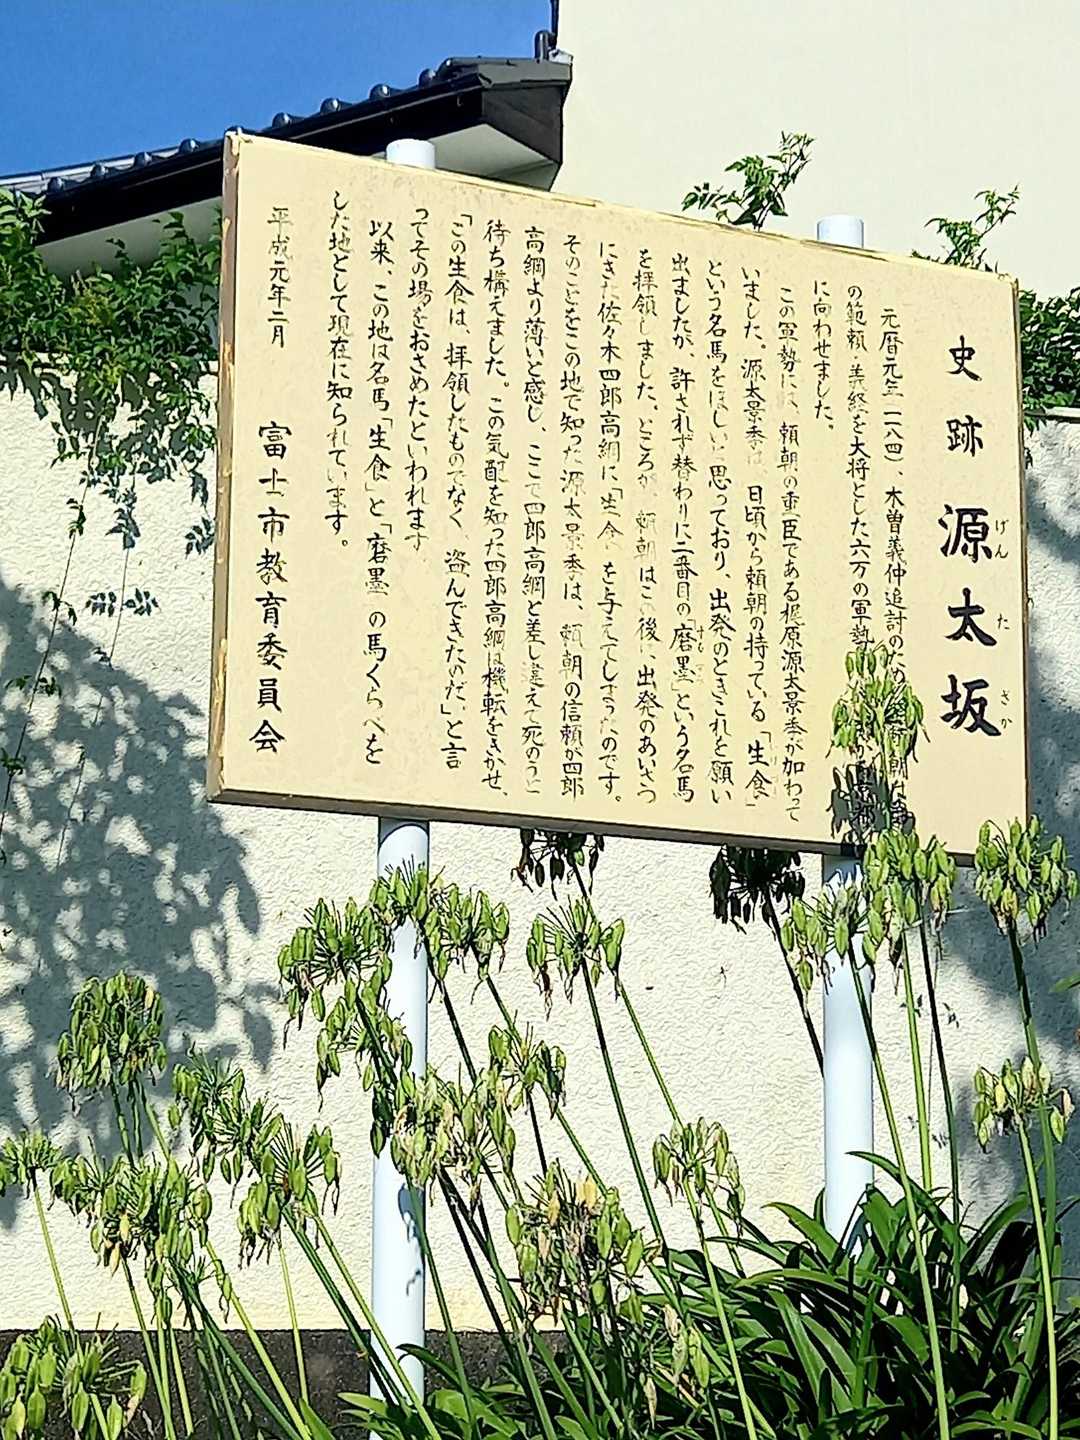 史跡 源太坂
げん た ざか
元暦元年(一一八四)、木曽義仲追討のため
の範頼・義経を大将とした六万の軍勢
に向わせました。
この軍勢には、頼朝の重臣である梶原源太景季が加わって
いました。源太景季は、日頃から頼朝の持っている「生食」
という名馬をほしいと思っており、出発のときこれを願い
出ましたが、許されず替わりに二番目の「磨墨」という名馬
を拝領しました。ところが、頼朝はこの後に出発のあいさつ
にきた佐々木四郎高綱に「生食」を与えてしまったのです。
そのことをこの地で知った源太景季は、頼朝の信頼が四郎
高綱より薄いと感じ、ここで四郎高綱と差し違えて死のうと
待ち構えました。この気配を知った四郎高綱は機転をきかせ、
「この生食は、拝領したものでなく、盗んできたのだ」と言
ってその場をおさめたといわれます
以来、この地は名馬「生食」と「磨墨」の馬くらべを
した地として現在に知られています。
平成元年二月
富士市教育委員会